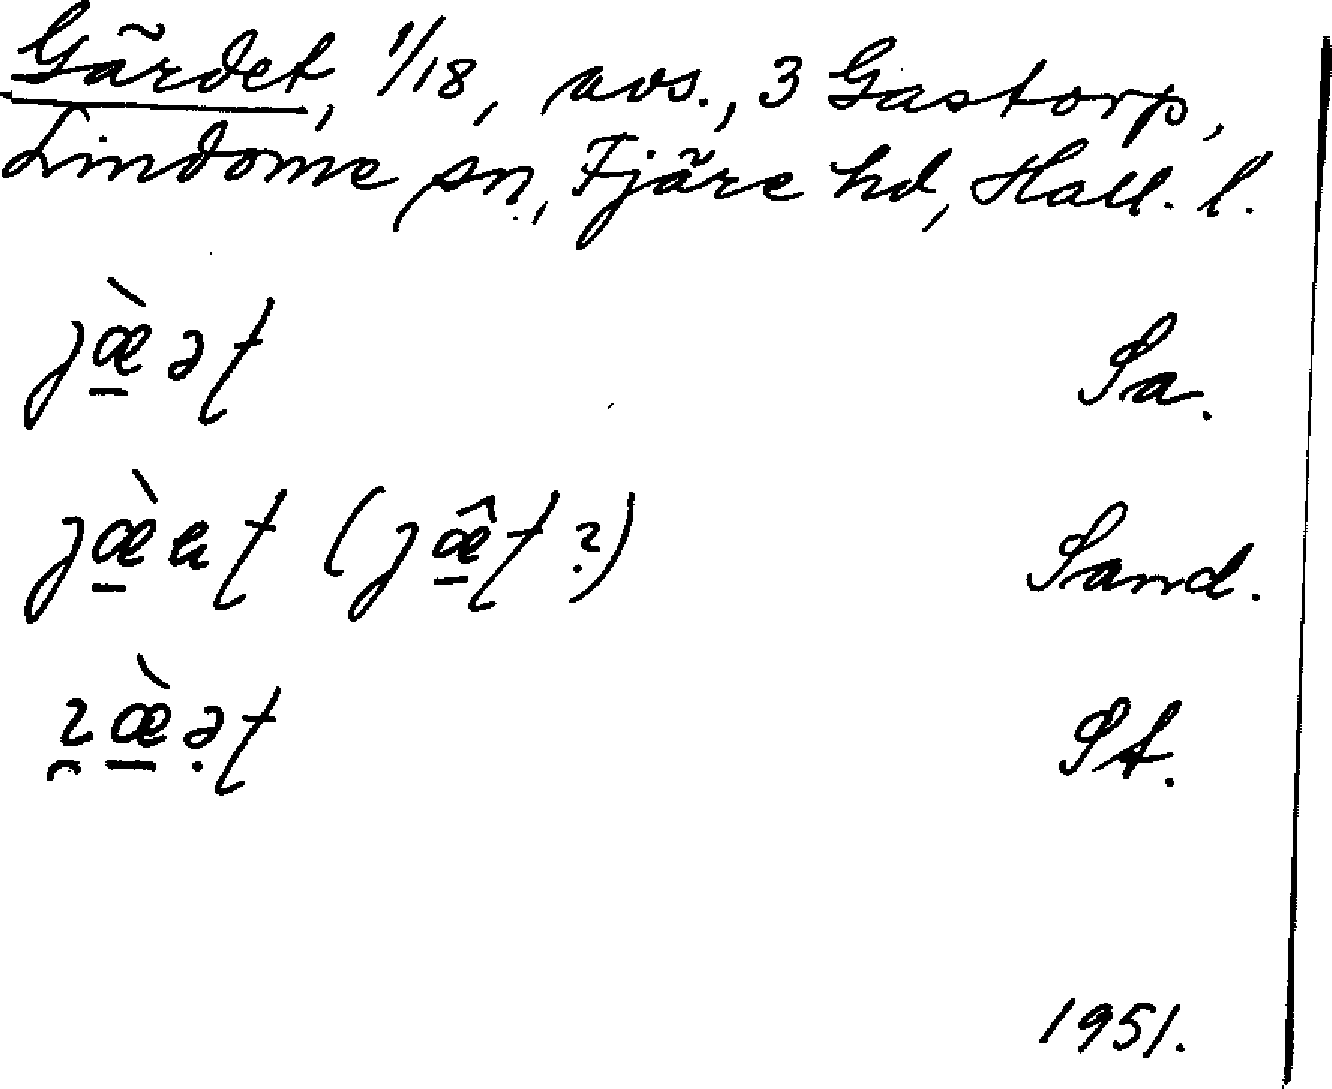 Gärdet, 1/18, avs., 3 Gastorp,
Lindome sn, Fjäre hd, Hall. l.
jæ̠̀ət Sa.
jæ̠̀at (jæ̠̂t ?) Sand.
æ̠̀ət St.
1951.